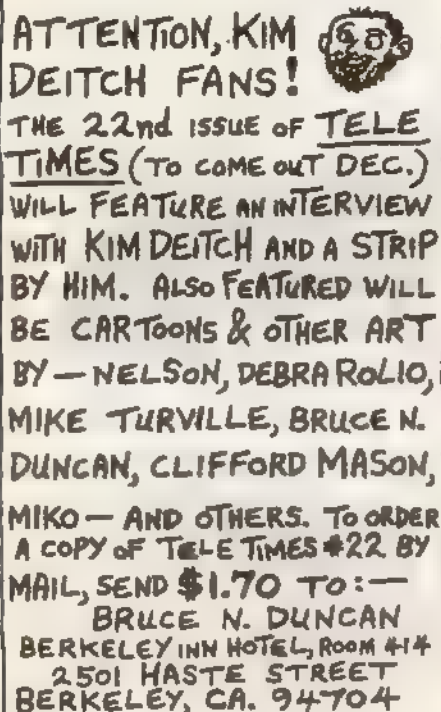 ATTENTION, KIM
DEITCH FANS!
THE 22nd ISSUE OF TELE
TIMES (TO COME OUT DEC.)
WILL FEATURE AN INTERVIEW
WITH KIM DEITCH AND A STRIP
BY HIM. ALSO FEATURED WILL
BE CARTOONS & OTHER ART
BY — NELSON, DEBRA ROLIO,
MIKE TURVILLE, BRUCE N.
DUNCAN, CLIFFORD MASON,
MIKO — AND OTHERS. TO ORDER
A COPY OF TELE TIMES #22 BY
MAIL, SEND $1.70 TO:—
BRUCE N. DUNCAN
BERKELEY INN HOTEL, ROOM 414
2501 HASTE STREET
BERKELEY, CA. 94704